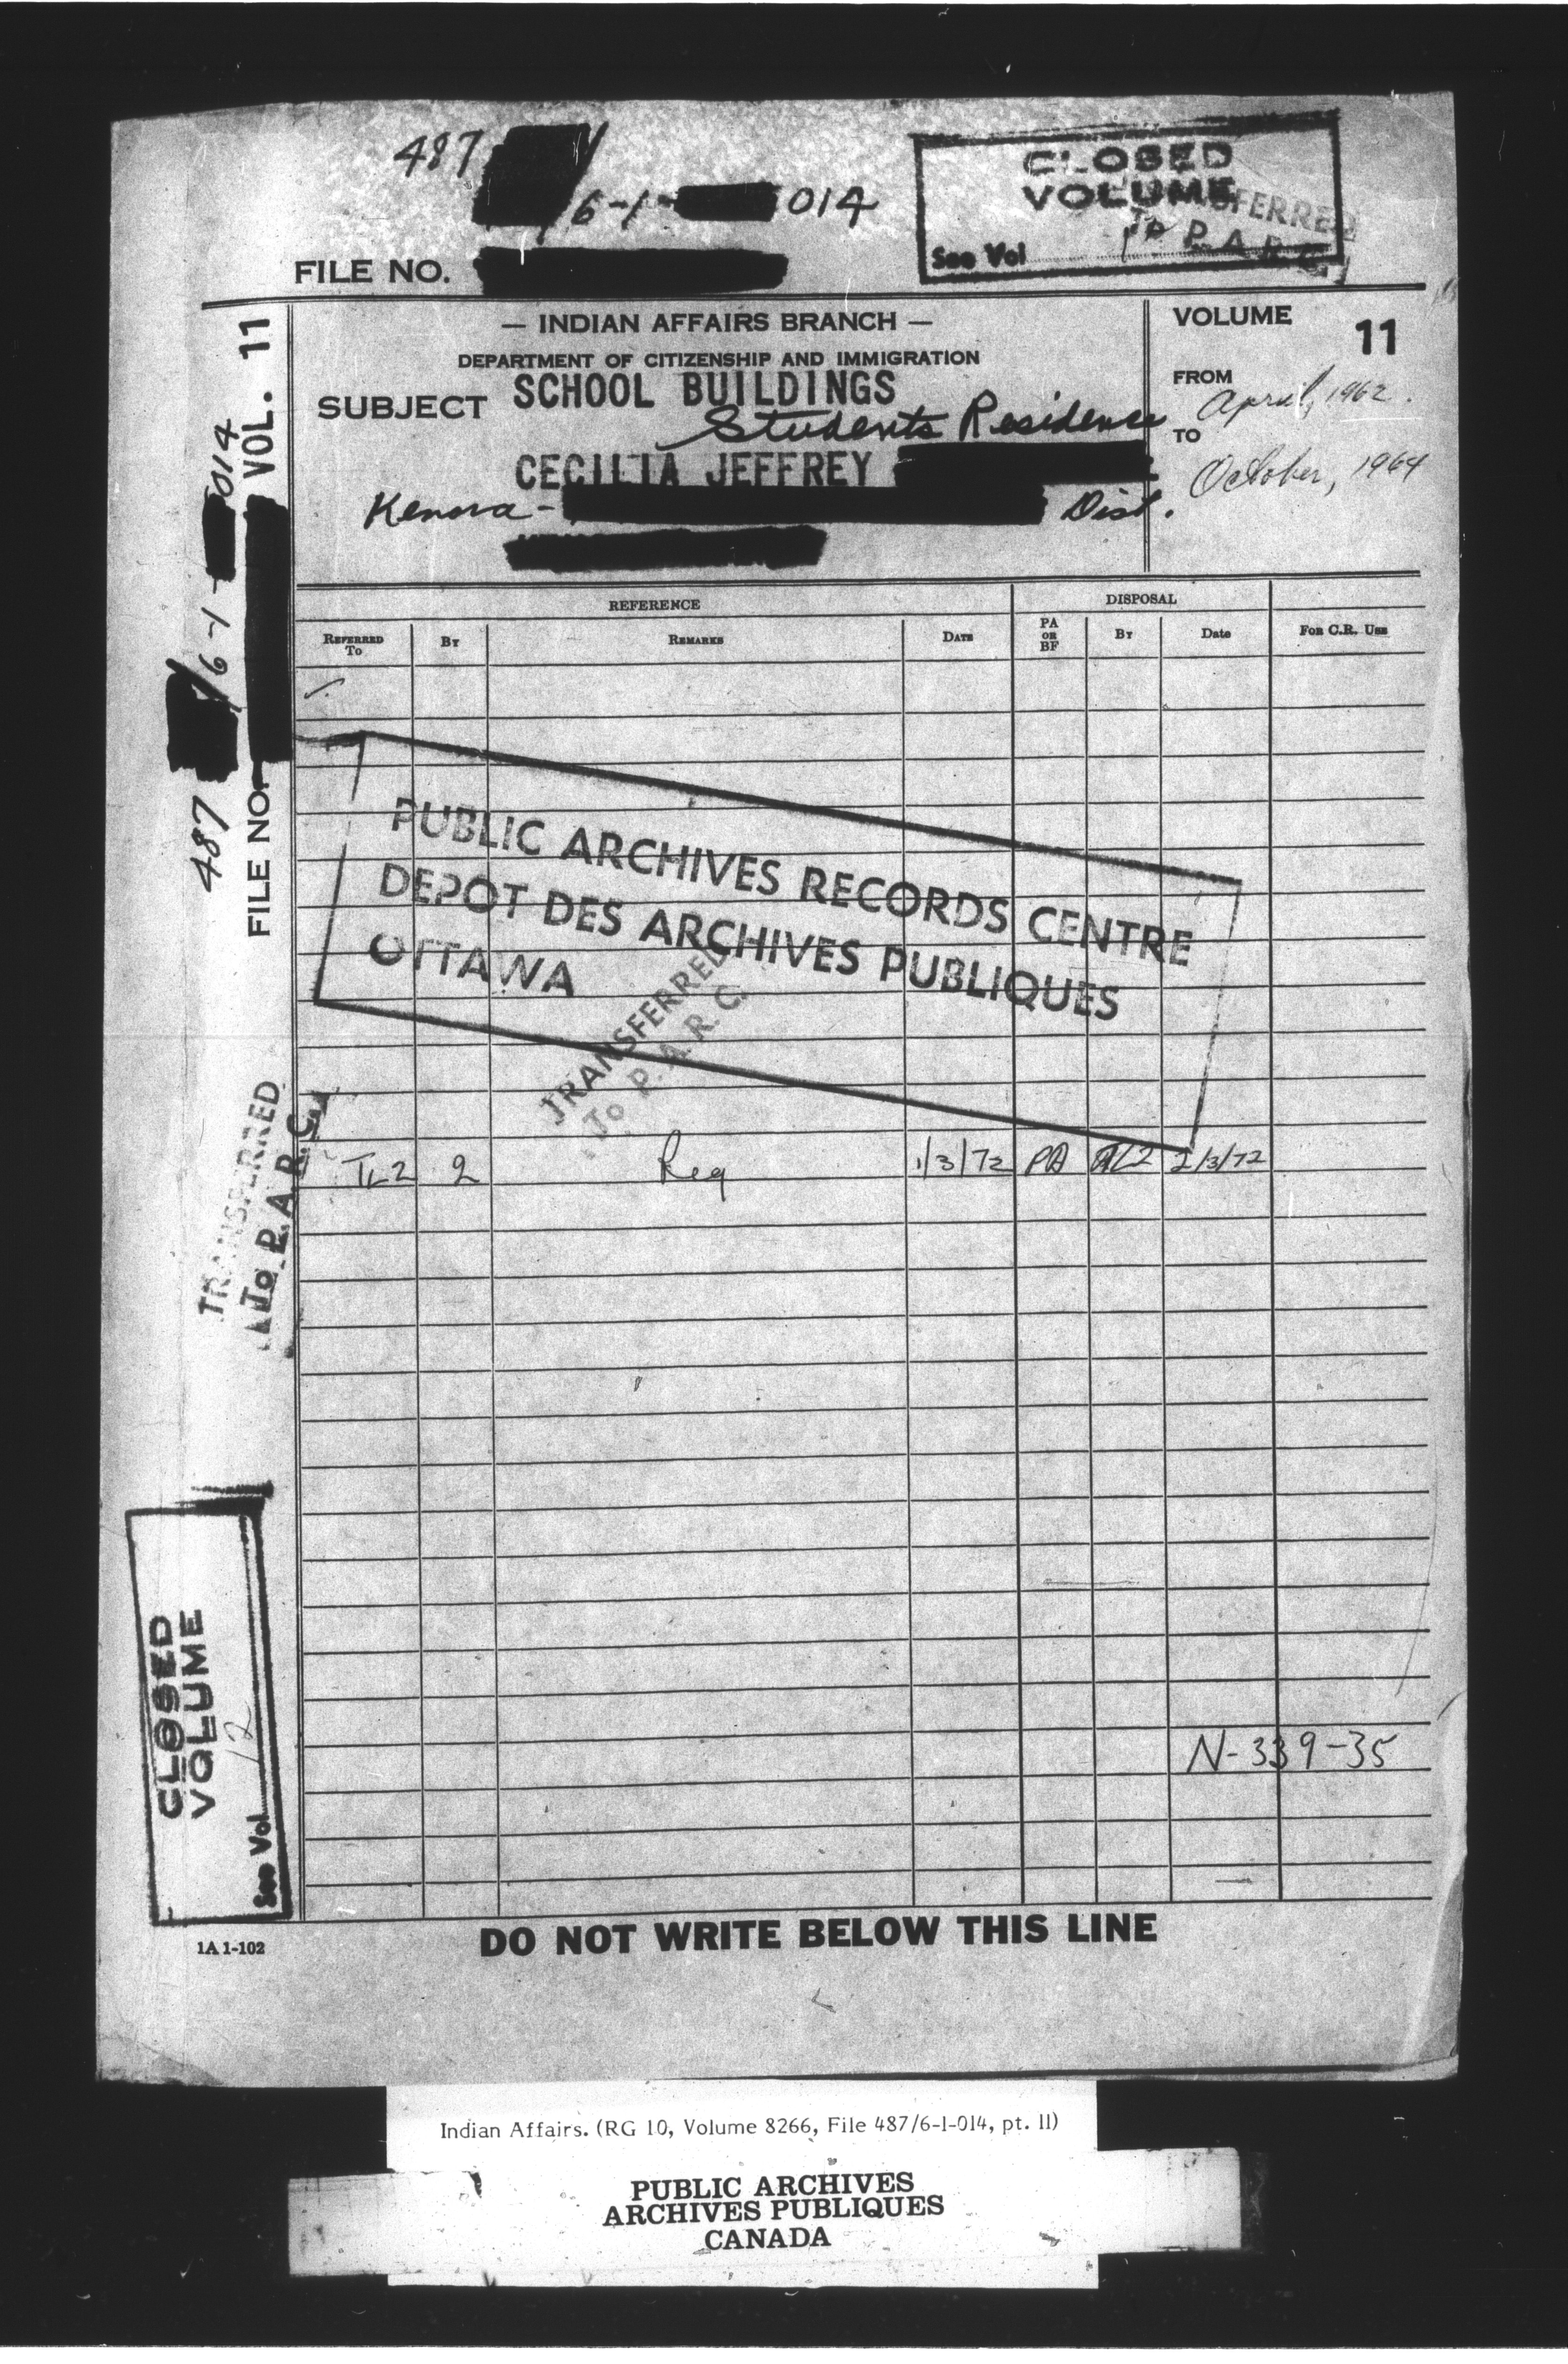 487/
6-1-014
CLOSED
VOLUME
TRANSFERRED
To P.A.R.C.
See Vol
FILE NO.
— INDIAN AFFAIRS BRANCH —
DEPARTMENT OF CITIZENSHIP AND IMMIGRATION
SUBJECT SCHOOL BUILDINGS
Students Residence
CECILIA JEFFREY
Kenora- Dist.
VOLUME 11
FROM
April, 1962.
TO
October, 1964
487/6-1-014
FILE NO. VOL. 11
REFERENCE
DISPOSAL
REFERRED TO
BY
REMARKS
DATE
PA OR BF
BY
Date
FOR C.R. USE
PUBLIC ARCHIVES RECORDS CENTRE
DEPOT DES ARCHIVES PUBLIQUES
OTTAWA
TRANSFERRED
To P.A.R.C.
TRANSFERRED
To P.A.R.C.
TL2 2 Req 1/3/72 PA TL2 2/3/72
CLOSED
VOLUME
See Vol 12
N-339-35
1A 1-102
DO NOT WRITE BELOW THIS LINE
Indian Affairs. (RG 10, Volume 8266, File 487/6-1-014, pt. 11)
PUBLIC ARCHIVES
ARCHIVES PUBLIQUES
CANADA